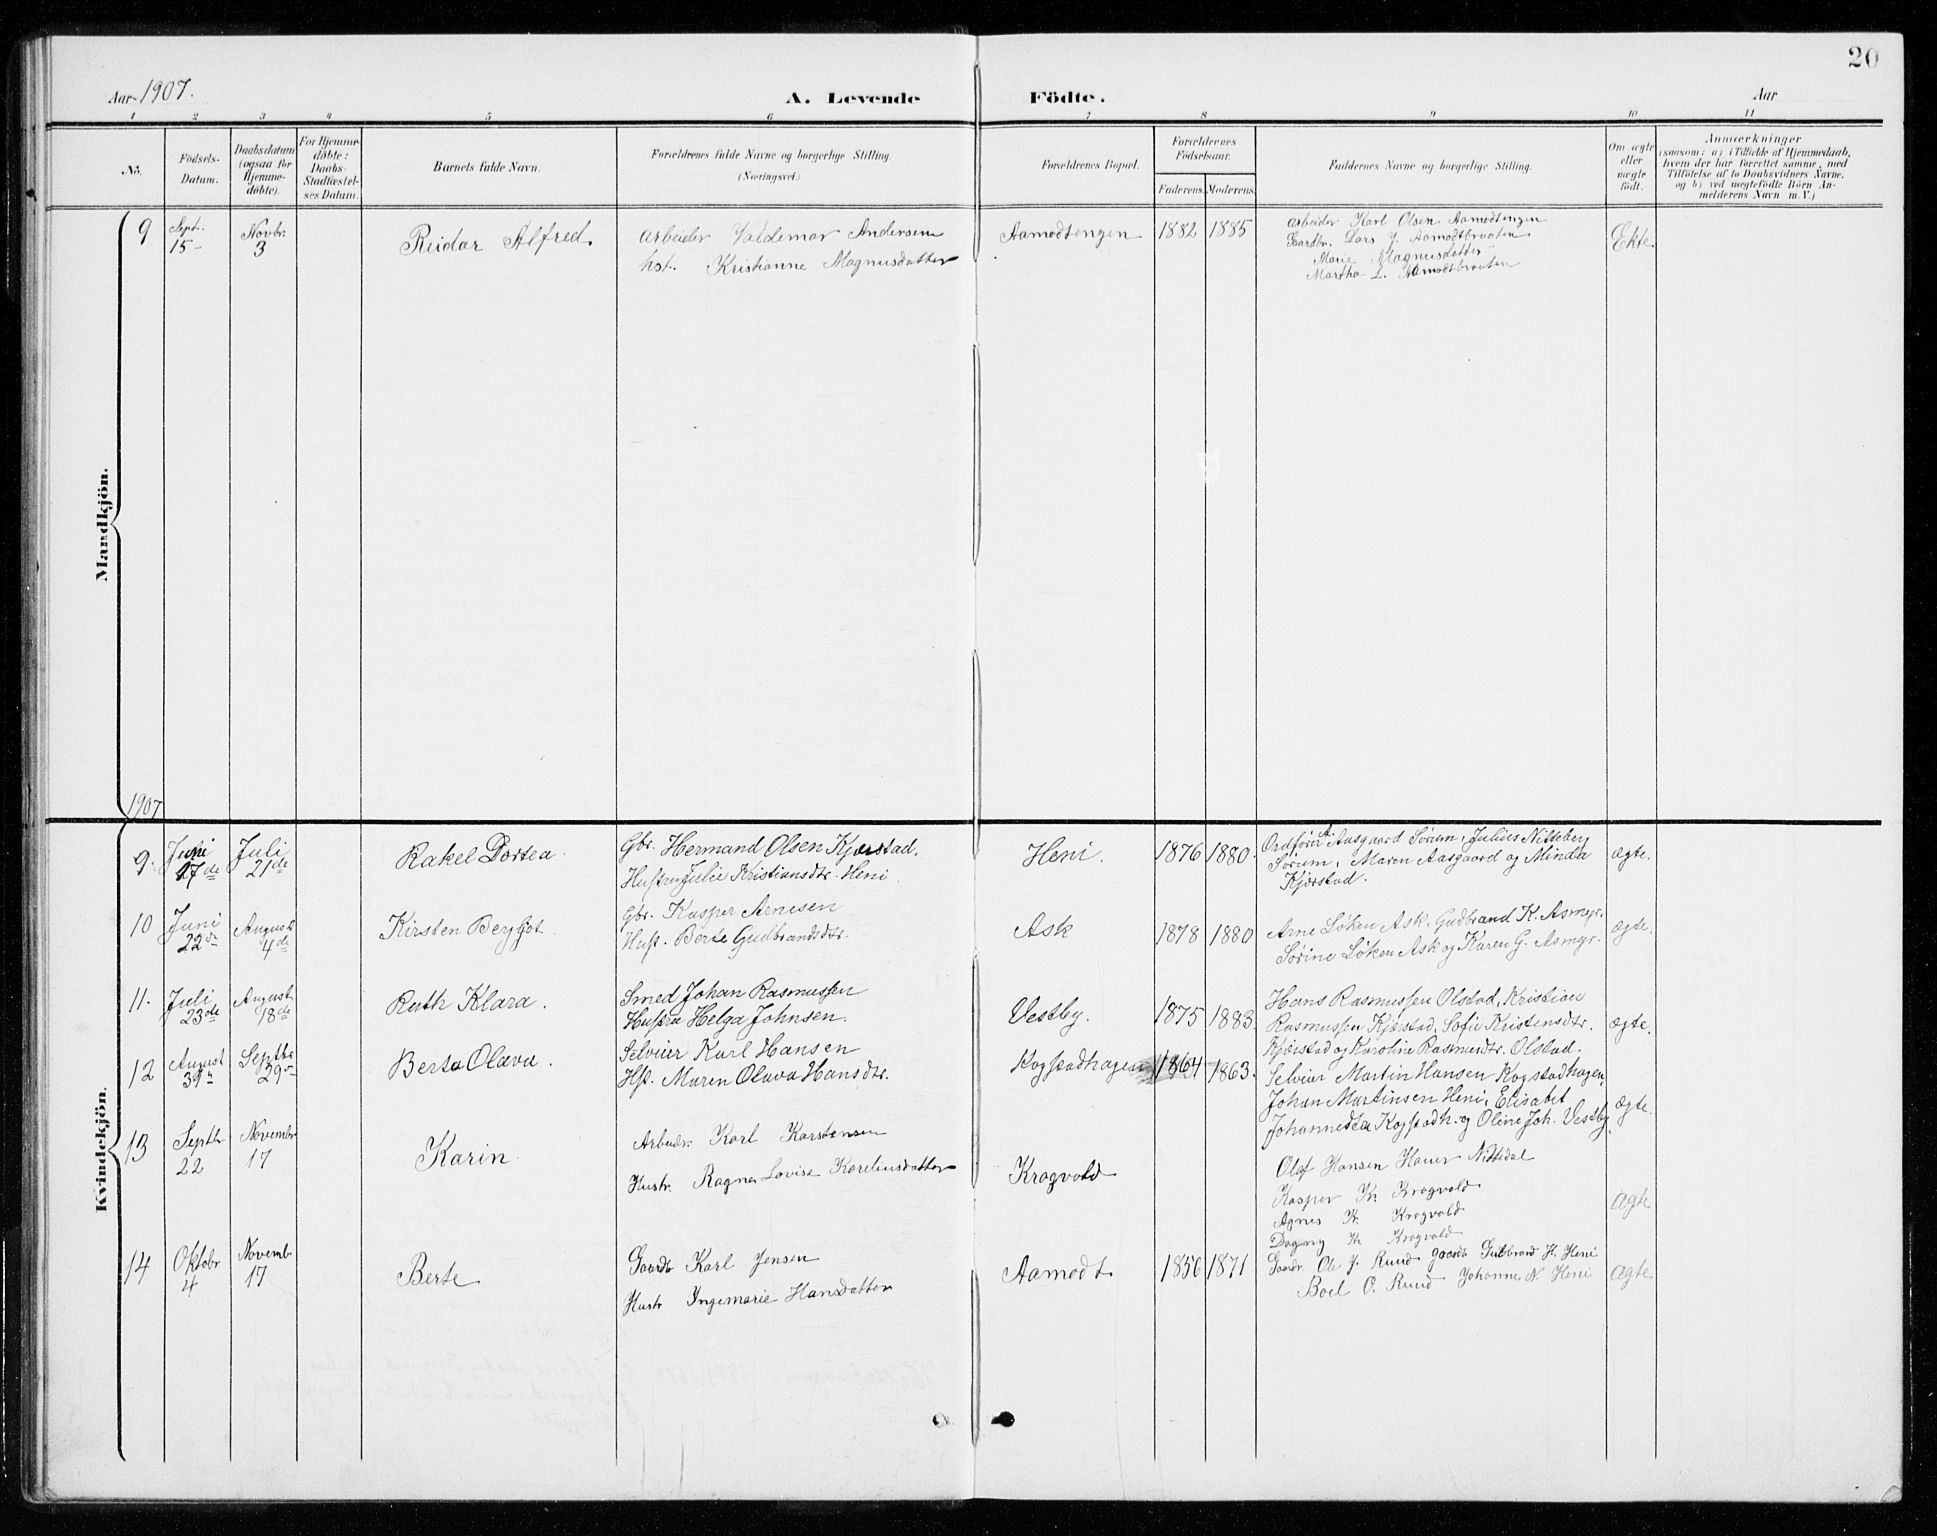 20
Aar 1907.
A. Levende Födte.
Aar
1 2 3 4 5 6 7 8 9 10 11
No.
Födsels-Datum.
Daabsdatum (ogsaa for Hjemmedöbte).
For Hjemmedöbte: Daabs-Stadfæstelses Datum.
Barnets fulde Navn.
Forældrenes fulde Navne og borgerlige Stilling (Næringsvei.)
Forældrenes Bopæl.
Forældrenes Födselsaar.
Faderens. Moderens.
Faddernes Navne og borgerlige Stilling.
Om ægte eller uægte födt.
Anmærkninger
(saasom: a) i Tilfælde af Hjemmedaab, hvem der har forrettet samme, med Tilföielse af to Daabsvidners Navne, og b) ved uægtefödte Börn Anmelderens Navn m. V.)
Mandkjön.
9 Sept. 15 Novbr. 3 Reidar Alfred Arbeider Valdemar Andersen Aamodtengen 1882 1885 Arbeider Karl Olsen Aamodtengen Ekte
hst. Kristianne Magnusdatter Gaardbr. Lars J. Aamodtbraaten
Marie Magnusdatter
Martha L. Aamodtbraaten
1907
Kvindekjön.
9. Juni 17de Juli 21de Rakel Dortea. Gbr. Hermand Olsen Kjærstad. Heni. 1876 1880. Ordfører A. Aasgaard Sørum, Julius Nitteberg ægte.
Hustru Julie Kristiansdtr. Heni Sørum, Maren Aasgaard og Minda
Kjærstad.
10 Juni 22de August 4de Kirsten Bergljot. Gbr. Kasper Arnesen Ask 1878 1880 Arne Løken Ask, Gudbrand K. Asmyr. ægte.
Hust. Berte Gudbrandsdtr. Sørine Løken Ask og Karen G. Asmyr.
11. Juli 23de August 18de Ruth Klara. Smed Johan Rasmussen Vestby. 1875 1883. Hans Rasmussen Olstad, Kristian ægte.
Hustru Helga Johnsen. Rasmussen Kjærstad, Sofie Kristensdtr.
Kjærstad og Karoline Rasmusdtr. Olstad.
12 August Septbr. 29 Berte Olava. Selveier Karl Hansen Kogstadhagen 1864 1863. Selveier Martin Hansen Kogstadhagen, ægte.
Hst. Maren Olava Hansdtr. Johan Martinsen Heni, Elisabet
Kogstadh. og Oline Joh. Vestby.
13 Septbr 22 Novembr 17 Karin Arbeidr. Karl Karstensen Kragvold Olaf Hansen Hauer Nittedal ægte
Hustr. Ragna Lovise Karelinsdatter Kasper K. Kragvold
Agnes K. Kragvold
Dagny K. Kragvold
14 Oktobr 4 Novemb 17 Berte Gaardb Karl Jensen Aamodt 1856 1871 Gaardr. Ole J. Ruud Gaardb Gulbrand H. Heni ægte
Hustr Ingemarie Hansdatter Boel O. Ruud Johanne N. Heni